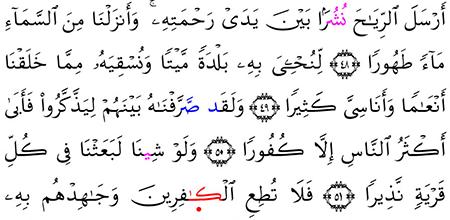 أَرْسَلَ ٱلرِّيَٰحَ نُشُرًۢا بَيْنَ يَدَىْ رَحْمَتِهِۦۚ وَأَنزَلْنَا مِنَ ٱلسَّمَآءِ
مَآءً طَهُورًا ۝٤٨ لِّنُحْـِۧىَ بِهِۦ بَلْدَةً مَّيْتًا وَنُسْقِيَهُۥ مِمَّا خَلَقْنَا
أَنْعَٰمًا وَأَنَاسِىَّ كَثِيرًا ۝٤٩ وَلَقَد صَّرَّفْنَٰهُ بَيْنَهُمْ لِيَذَّكَّرُوا۟ فَأَبَىٰٓ
أَكْثَرُ ٱلنَّاسِ إِلَّا كُفُورًا ۝٥٠ وَلَوْ شِينَا لَبَعَثْنَا فِى كُلِّ
قَرْيَةٍ نَّذِيرًا ۝٥١ فَلَا تُطِعِ ٱلْكَٰفِرِينَ وَجَٰهِدْهُم بِهِۦ